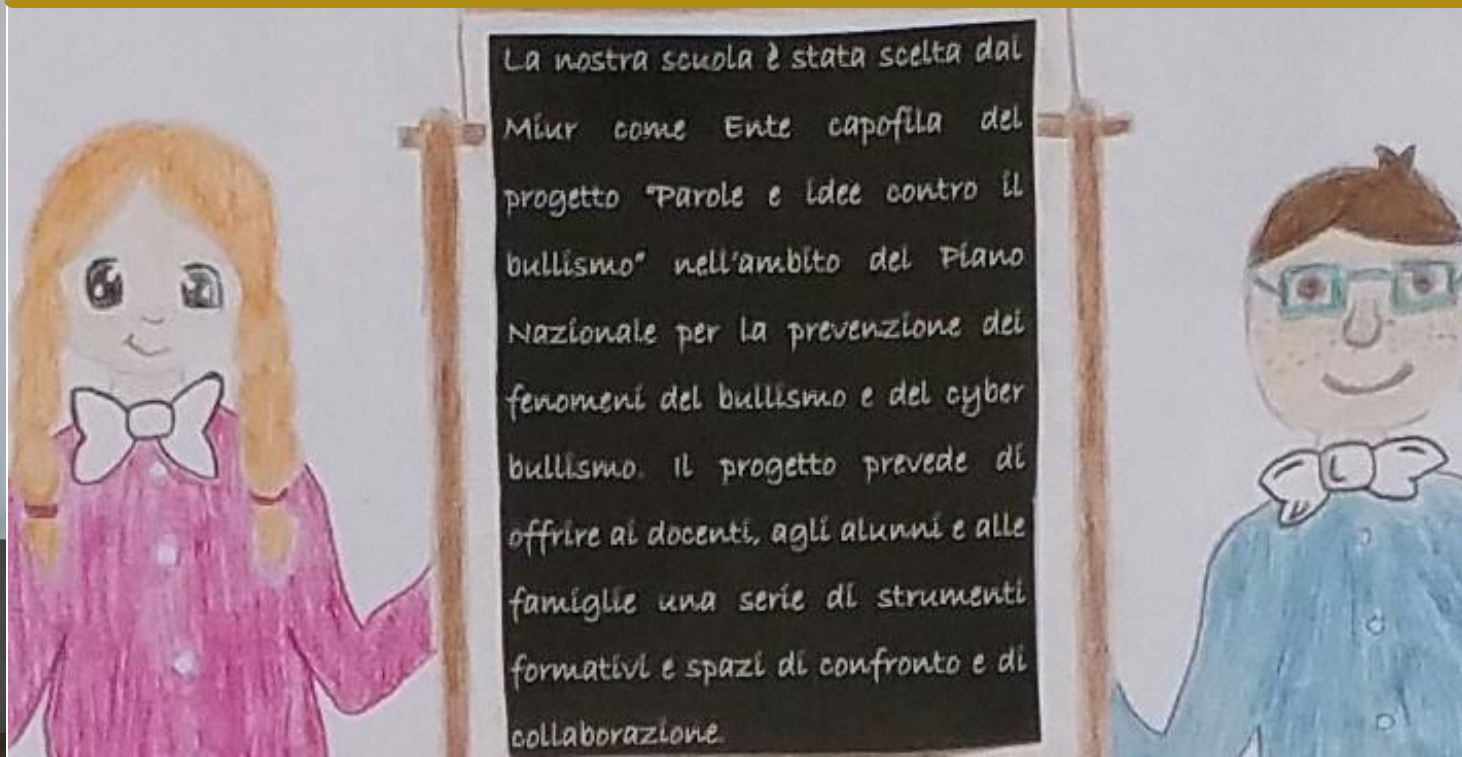 La nostra scuola è stata scelta dal
Miur come Ente capofila del
progetto "Parole e idee contro il
bullismo" nell'ambito del Piano
Nazionale per la prevenzione dei
fenomeni del bullismo e del cyber
bullismo. Il progetto prevede di
offrire ai docenti, agli alunni e alle
famiglie una serie di strumenti
formativi e spazi di confronto e di
collaborazione.